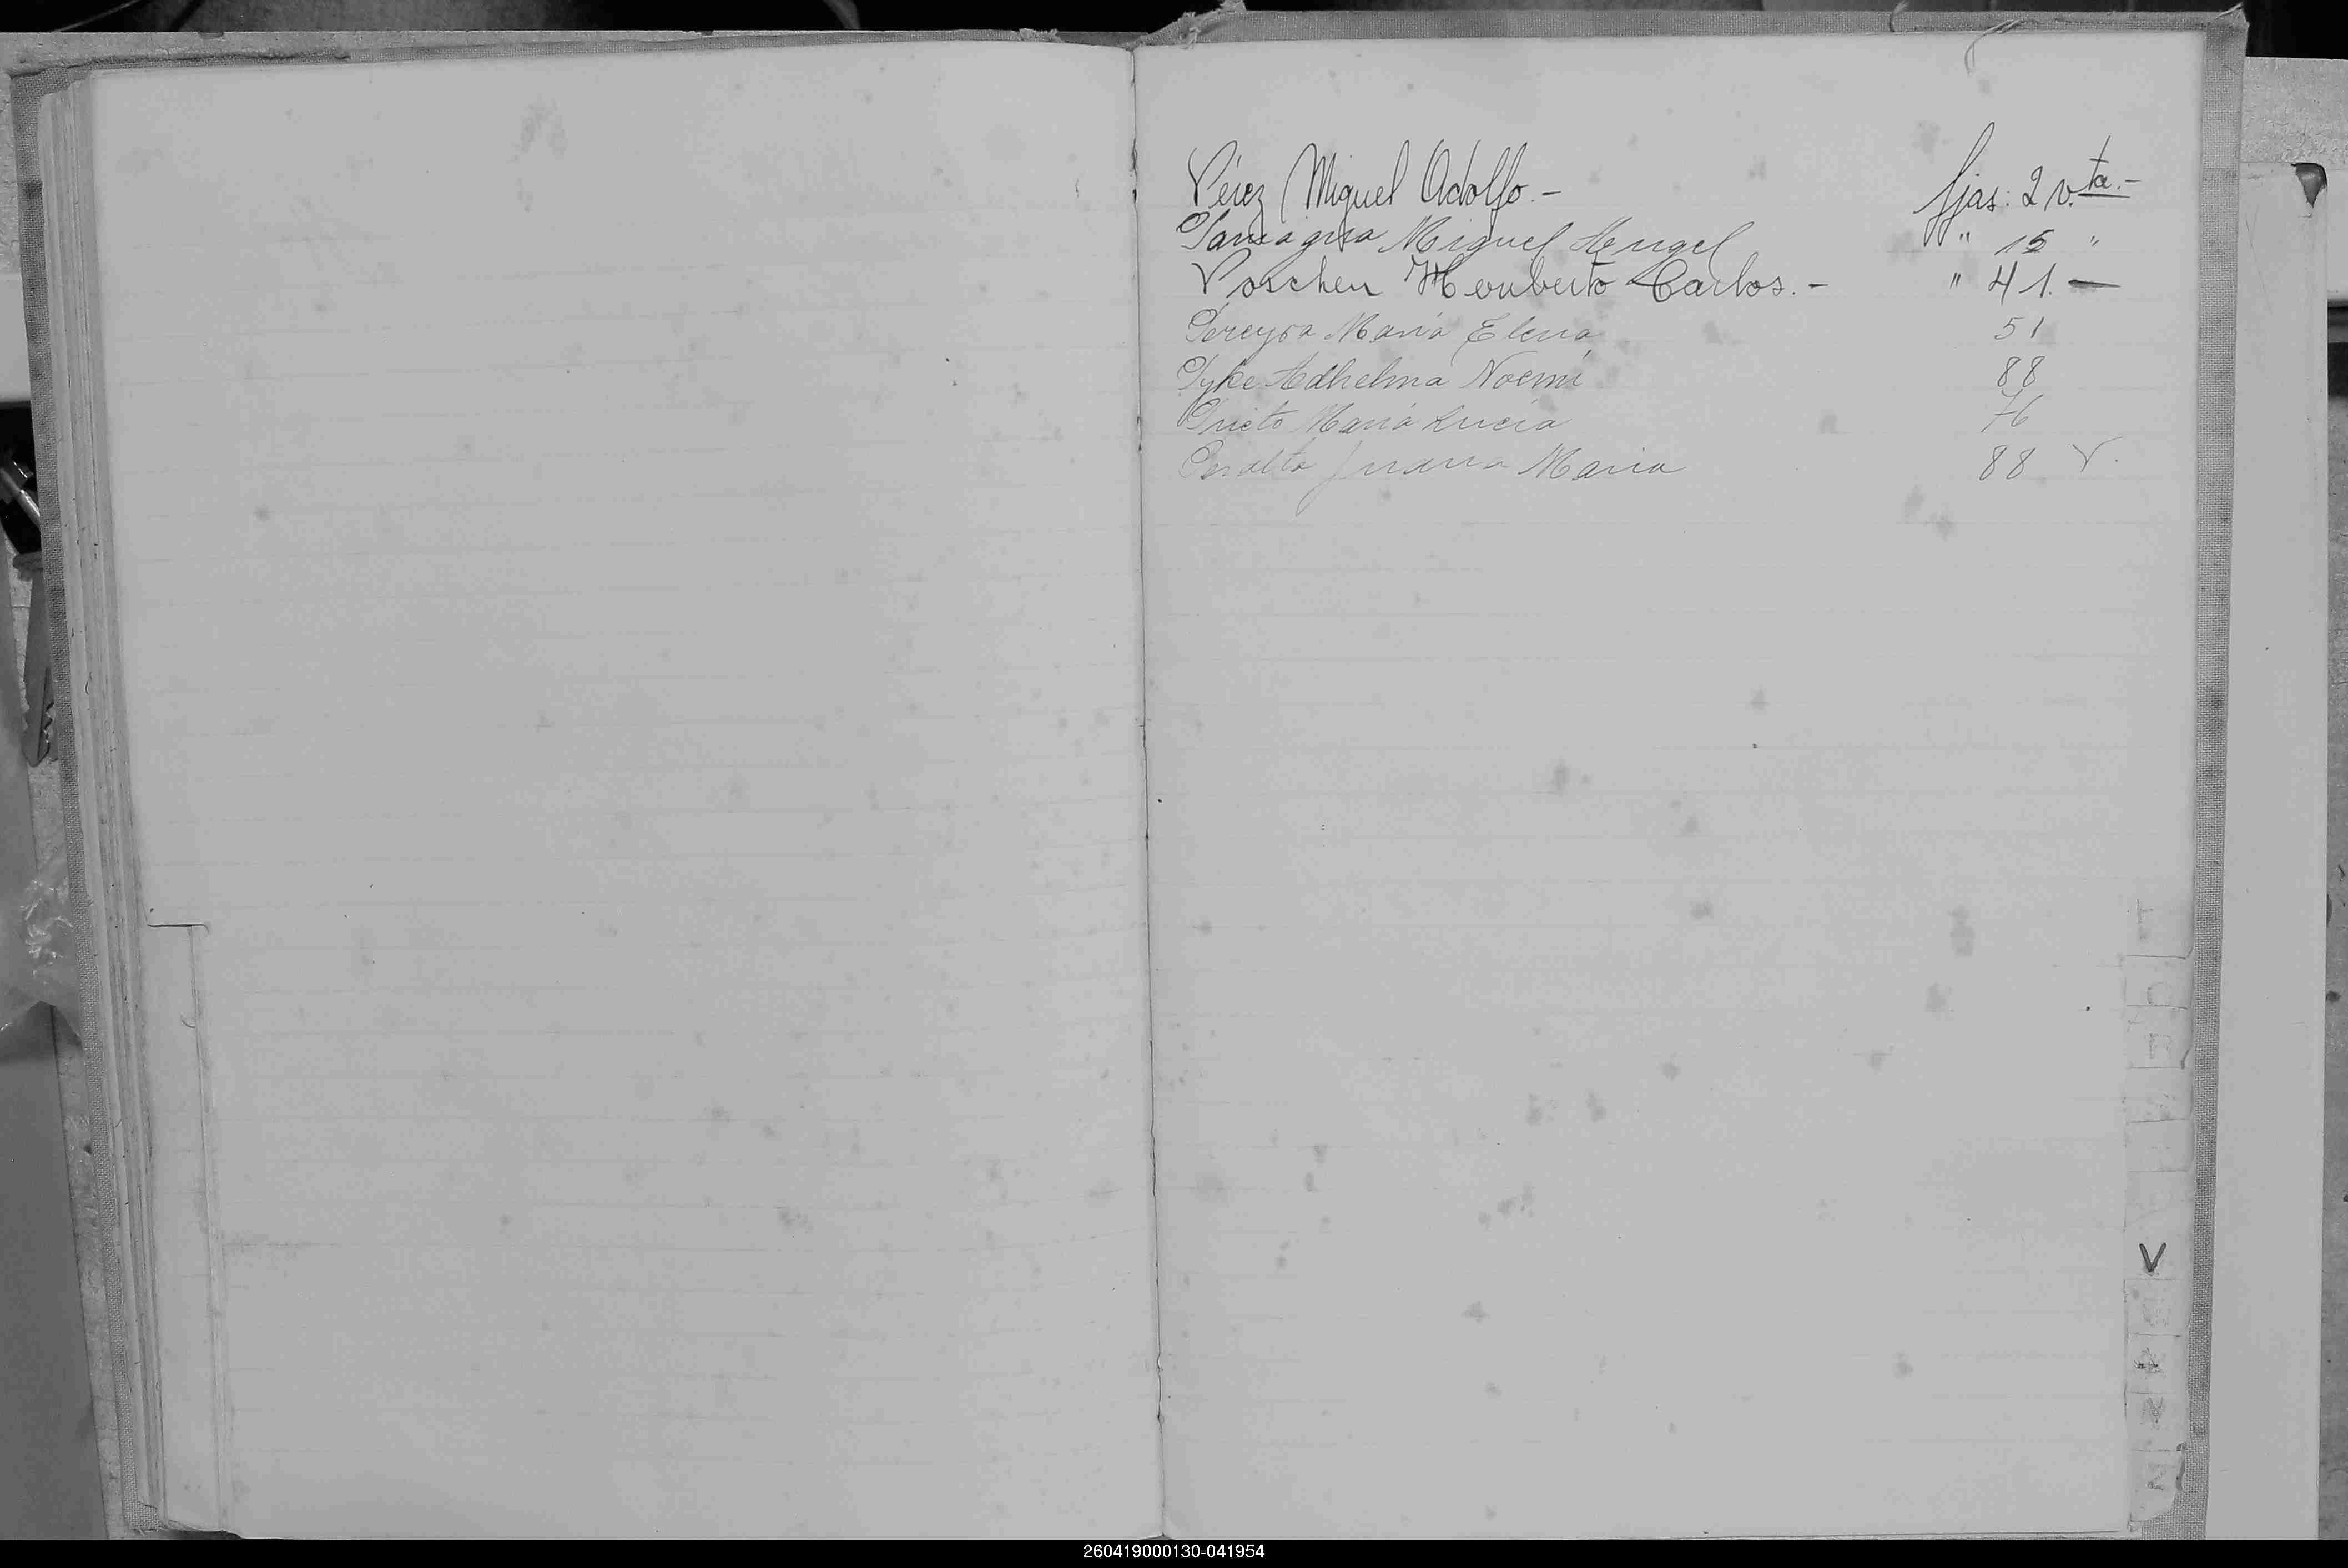 Pérez Miguel Adolfo.- fjas: 2 v.ta.-
Miguel Angel " 15 "
Poschen Heriberto Carlos.- " 41.—
Pereyra María Elena 51
Pyke Adhelma Noemí 88
Prieto María Lucía 76
Peralta Juana Maria 88 v.
V
260419000130-041954